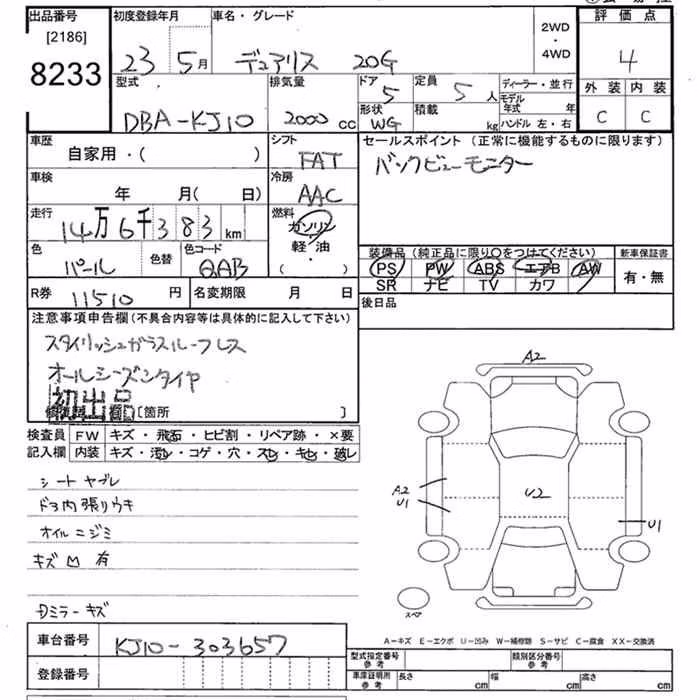 出品番号
[2186]
8233
初度登録年月
23 5月
車名・グレード
デュアリス 20G
2WD
・
4WD
評価点
4
外装 内装
C C
型式
DBA-KJ10
排気量
2000 cc
ドア
5
形状
WG
定員
5人
積載
kg
ディーラー・並行
モデル年式 年
ハンドル 左・右
車歴
自家用・( )
シフト
FAT
セールスポイント(正常に機能するものに限ります)
バックビューモニター
車検
年 月(日)
冷房
AAC
走行
14万6千383km
燃料
ガソリン
軽・油
( ・ )
色
パール
色替
色コード
QAB
装備品(純正品に限り○をつけてください)
PS PW ABS エアB AW
SR ナビ TV カワ
新車保証書
有・無
R券 11510円
名変期限 月 日
後日品
注意事項申告欄(不具合内容等は具体的に記入して下さい)
スタイリッシュガラスルーフレス
オールシーズンタイヤ
初出品
[箇所 ]
検査員 FW キズ・飛石・ヒビ割・リペア跡・×要
記入欄 内装 キズ・汚レ・コゲ・穴・スレ・キレ・破レ
シートヤブレ
ドア内張りウキ
オイルニジミ
キズ凹有
Dミラーキズ
A2
A2
U1
U2
U1
スペア
A-キズ E-エクボ U-凹み W-補修跡 S-サビ C-腐食 XX-交換済
車台番号 KJ10-303657
登録番号
型式指定番号 参考
類別区分番号 参考
車庫証明用 参考
長さ cm 幅 cm 高さ cm